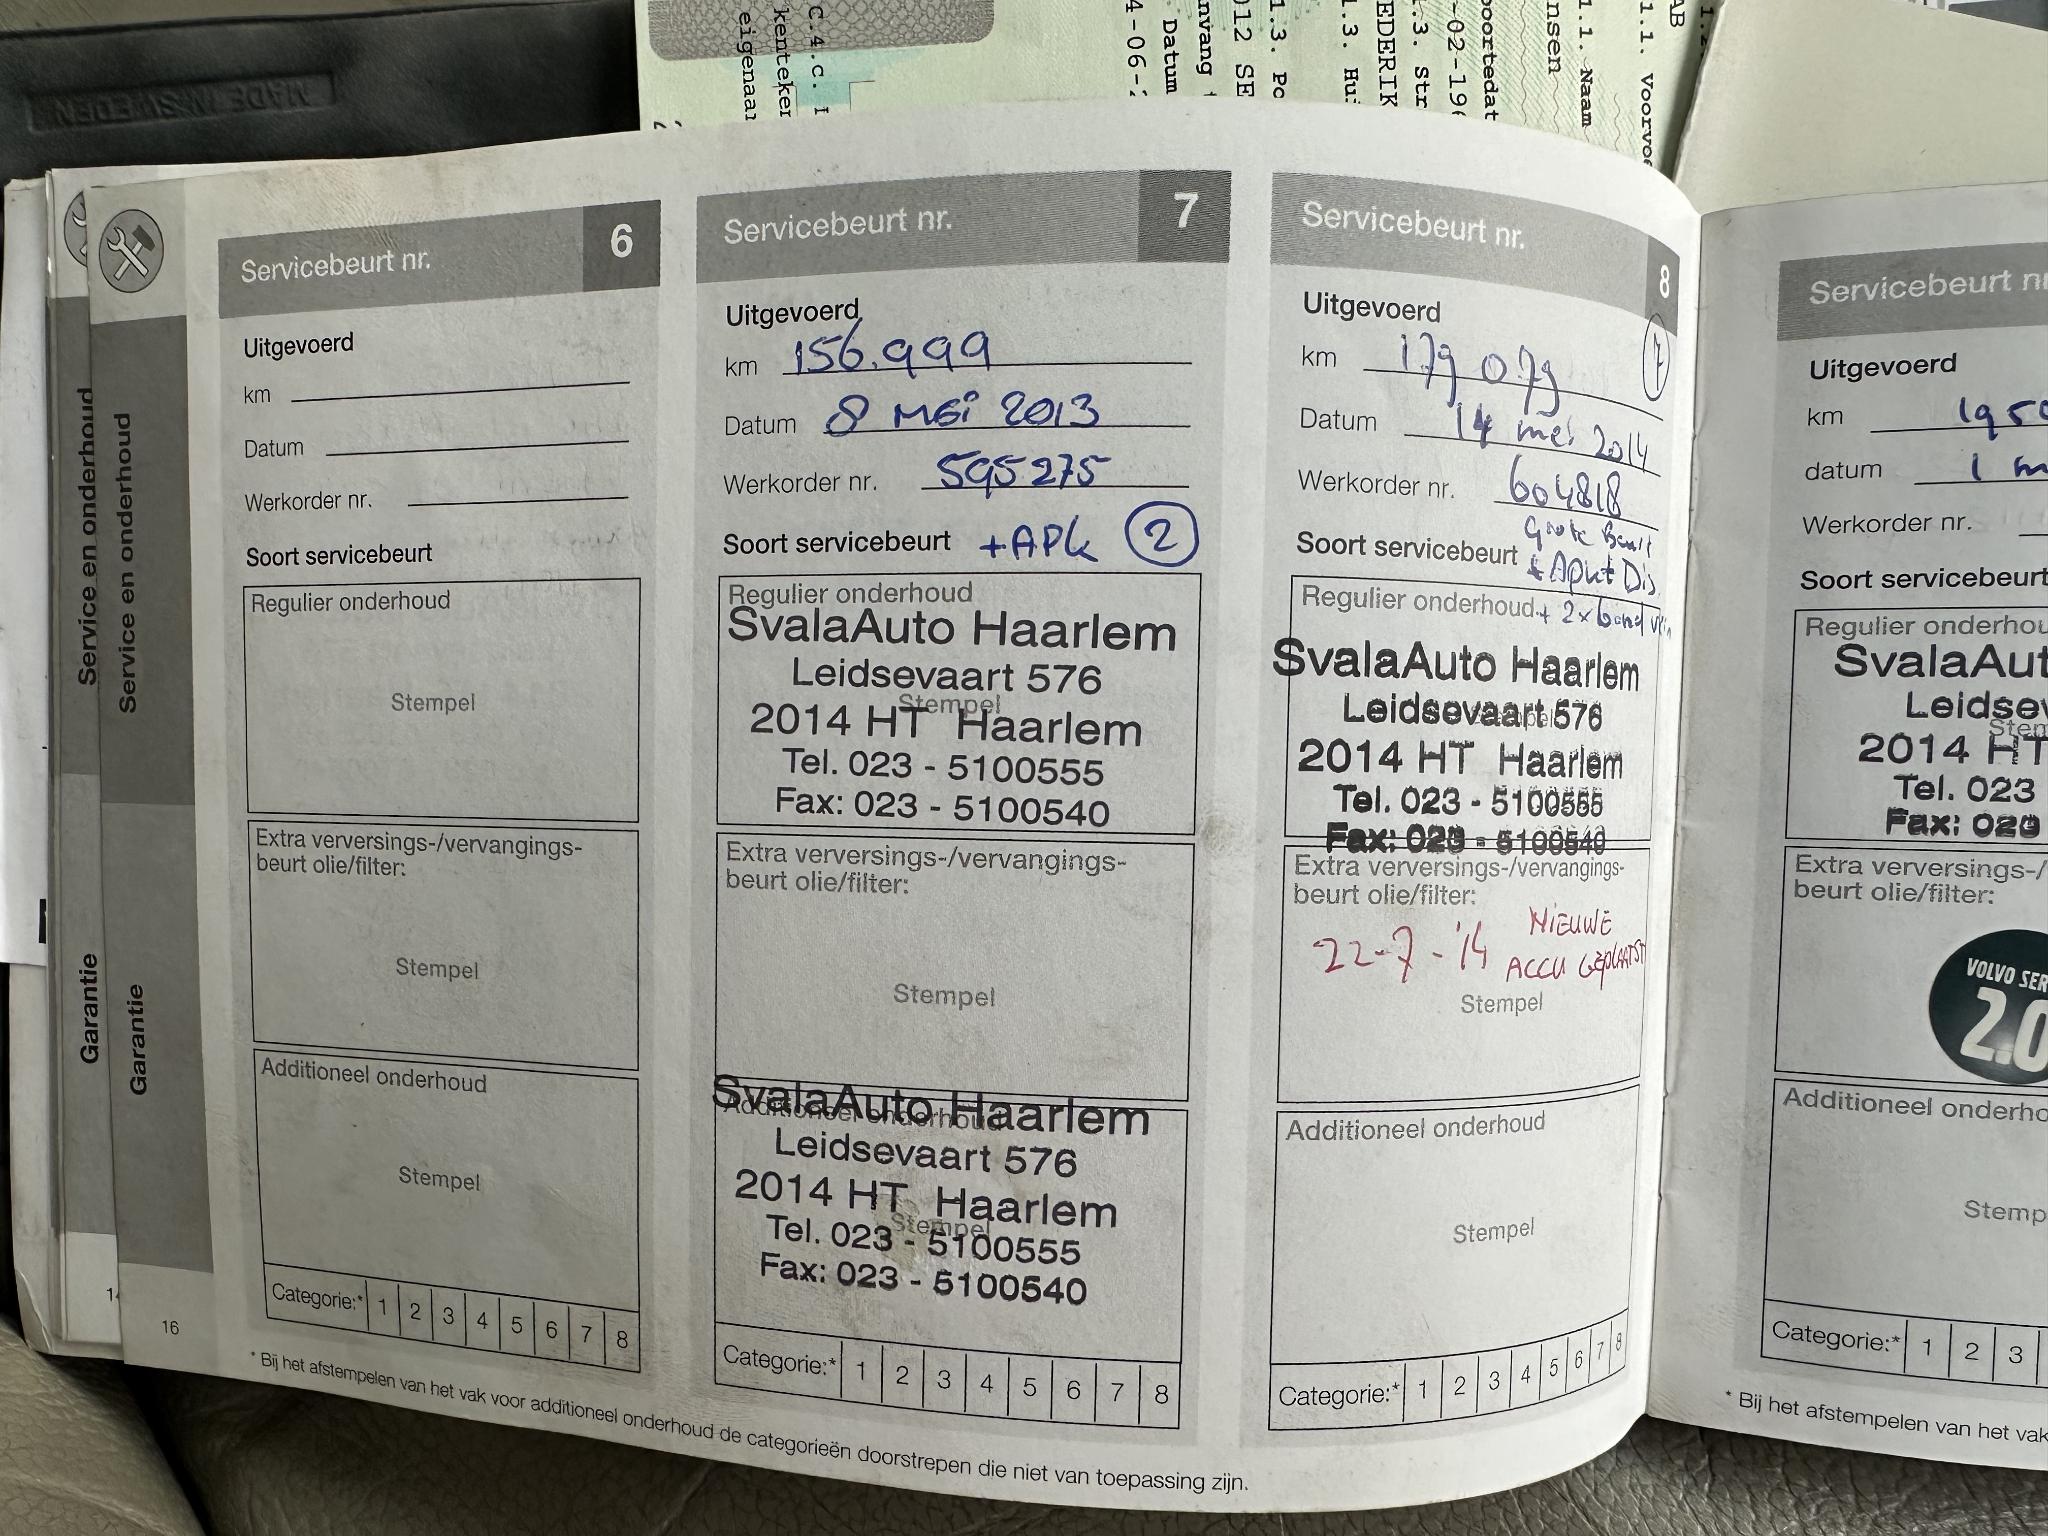 MADE IN SWEDEN
C.4.c. I
kenteker
eigenaar
Datum
nvang
012 SE
1.3. Pc
1.3. Hui
EDERIK
.3. Str
-02-196
oortedat
nsen
1.1. Naam
1.1. Voorvoe
AB
Service en onderhoud
Garantie
Service en onderhoud
Garantie
16
Servicebeurt nr. 6
Uitgevoerd
km
Datum
Werkorder nr.
Soort servicebeurt
Regulier onderhoud
Stempel
Extra verversings-/vervangings-
beurt olie/filter:
Stempel
Additioneel onderhoud
Stempel
Categorie:* 1 2 3 4 5 6 7 8
Servicebeurt nr. 7
Uitgevoerd
km 156.999
Datum 8 mei 2013
Werkorder nr. 595275
Soort servicebeurt +APK 2
Regulier onderhoud
SvalaAuto Haarlem
Leidsevaart 576
Stempel
2014 HT Haarlem
Tel. 023 - 5100555
Fax: 023 - 5100540
Extra verversings-/vervangings-
beurt olie/filter:
Stempel
SvalaAuto Haarlem
Additioneel onderhoud
Leidsevaart 576
2014 HT Haarlem
Stempel
Tel. 023 - 5100555
Fax: 023 - 5100540
Categorie:* 1 2 3 4 5 6 7 8
Servicebeurt nr. 8
Uitgevoerd
7
km 179 079
Datum 14 mei 2014
Werkorder nr. 604818
Grote Beurt
Soort servicebeurt + Apk + Dis
Regulier onderhoud + 2x band
SvalaAuto Haarlem
Leidsevaart 576
Stempel
2014 HT Haarlem
Tel. 023 - 5100555
Fax: 023 - 5100540
Extra verversings-/vervangings-
beurt olie/filter:
22-7-'14 NIEUWE
ACCU GEPLAATST
Stempel
Additioneel onderhoud
Stempel
Categorie:* 1 2 3 4 5 6 7 8
* Bij het afstempelen van het vak voor additioneel onderhoud de categorieën doorstrepen die niet van toepassing zijn.
Servicebeurt nr
Uitgevoerd
km 1950
datum 1 m
Werkorder nr.
Soort servicebeurt
Regulier onderhou
SvalaAut
Leidsev
Stem
2014 HT
Tel. 023
Fax: 023
Extra verversings-/
beurt olie/filter:
VOLVO SER
2.0
Additioneel onderho
Stemp
Categorie:* 1 2 3
* Bij het afstempelen van het vak